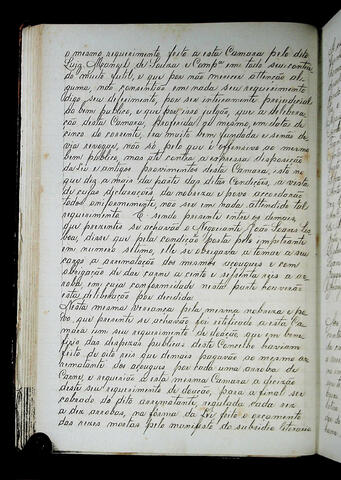 o mesmo requerimento, feito a esta Camara pelo dito
Luiz Manoel de Souza e Comp.ª em todo seu contra
do muito futil, e que por não merecer attenção al
guma, não consentião em nada seu requerimento
digo seu deferimento, por ser inteiramente prejudicial
ao bem publico, e que por isso julgão, que a delibera
ção desta Camara, proferida gal mesmo, em data de
cinco do corrente, era muito bem fundada e senão de
via revogar, não só pelo que é offensivo ao mesmo
bem publico, mas até contra a expressa disposição
da Lei e antigos provimentos desta Camara, isto no
que diz a mais da parte das ditas Condições, a vista
de cujas declarações da nobreza e povo accordarão
todos uniformemente, não ser em nada attendido tal
requerimento. E sendo presente entre os demais
que prezentes se achavão o Negociante João Soares Lis
boa, disse que pela condição posta pelo impetrante
em numero setimo, elle se obrigava a tomar a seu
cargo a arrematação dos mesmos açougues e com
obrigação de dar carne a cento e sessenta reis a ar
roba, em cuja conformidade nesta parte houverão
esta deliberação por decidida.
Nesta mesma vereança pela mesma nobreza e po
vo, que presente se achavão foi ratificado a esta Ca
mara um seu requerimento de doação que em bene
ficio das despezas publicas deste Concelho havião
feito de oito reis que demais pagavão ao mesmo ar
rematante dos açougues por cada uma arroba de
Carne, e requerião a esta mesma Camara a decizão
deste seu requerimento de doação, para a final ser
cobrado do dito arrematante, regulada cada rez
a dez arrobas, na forma da Lei feito o orçamento
das rezes mortas pelo manifesto do subsidio literario